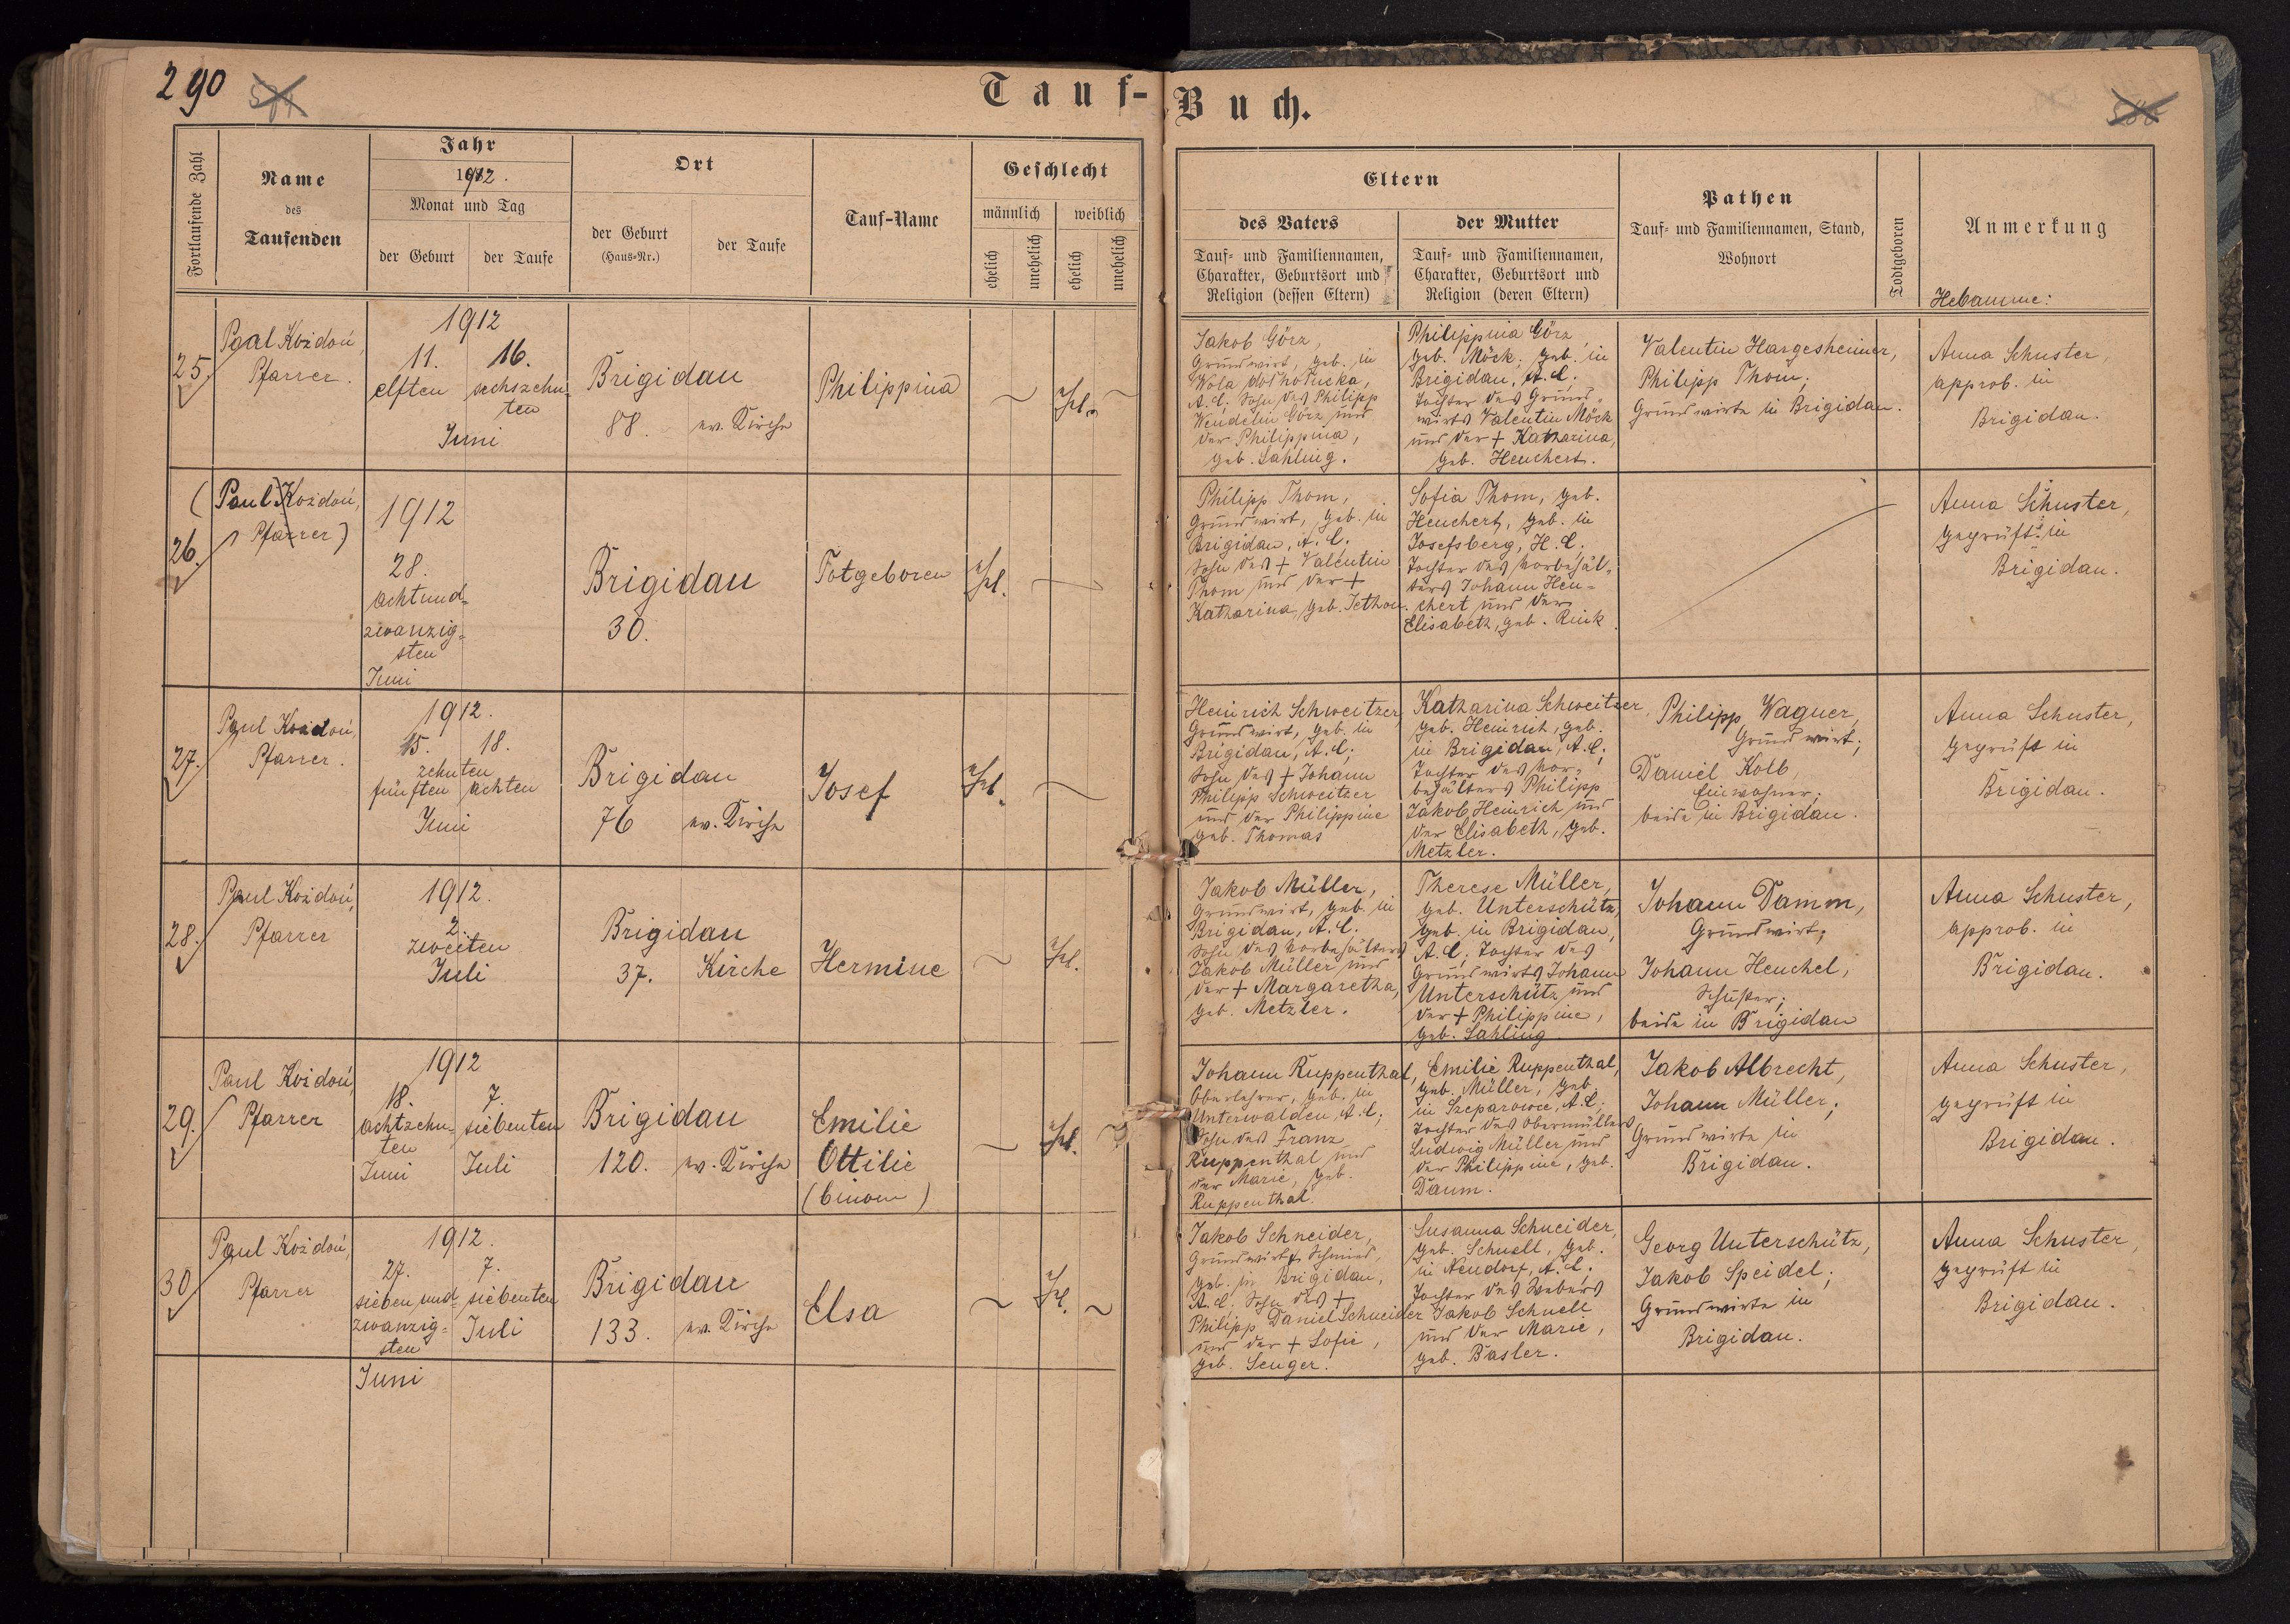 290
Tauf-Buch.
Fortlaufende Zahl
Name
des
Taufenden
Jahr
1912.
Monat und Tag
der Geburt
der Taufe
Ort
der Geburt
(Haus-Nr.)
der Taufe
Tauf-Name
Geschlecht
männlich
weiblich
ehelich
unehelich
ehelich
unehelich
Eltern
des Vaters
Tauf- und Familiennamen,
Charakter, Geburtsort und
Religion (dessen Eltern)
der Mutter
Tauf- und Familiennamen,
Charakter, Geburtsort und
Religion (deren Eltern)
Pathen
Tauf- und Familiennamen, Stand,
Wohnort
Todtgeboren
Anmerkung
Hebamme:
25.
Paul Kożdoń,
Pfarrer.
1912
11. 16.
elften sechszehn-
ten
Juni
Brigidau
88. ev. Kirche
Philippina
ehel.
Jakob Görz,
Grundwirt, geb. in
Wola dołhołucka,
A.C., Sohn des Philipp
Wendelin Görz und
der Philippina,
geb. Sahling.
Philippina Görz
geb. Möck, geb. in
Brigidau, A.C.,
Tochter des Grund-
wirts Valentin Möck
und der + Katharina,
geb. Heuchert.
Valentin Hargesheimer,
Philipp Thom;
Grundwirte in Brigidau.
Anna Schuster,
approb. in
Brigidau.
26.
(Paul Kożdoń,
Pfarrer)
1912
28.
achtund-
zwanzig-
sten
Juni
Brigidau
30.
Totgeboren
ehel.
Philipp Thom,
Grundwirt, geb. in
Brigidau, A.C.
Sohn des + Valentin
Thom und der +
Katharina, geb. Jethon.
Sofia Thom, geb.
Heuchert, geb. in
Josefsberg, H.C.,
Tochter des Vorbehäl-
ters Johann Heu-
chert und der
Elisabeth, geb.
Anna Schuster,
geprüft in
Brigidau.
27.
Paul Kożdoń,
Pfarrer.
1912.
15. 18.
zehnten
fünften achten
Juni
Brigidau
76 ev. Kirche
Josef
ehel.
Heinrich Schweitzer,
Grundwirt, geb. in
Brigidau, A.C.;
Sohn des + Johann
Philipp Schweitzer
und der Philippine
geb. Thomas
Katharina Schweitzer
geb. Heinrich, geb.
in Brigidau, A.C.;
Tochter des Vor-
behälters Philipp
Jakob Heinrich und
der Elisabeth, geb.
Metzler.
Philipp Wagner,
Grundwirt;
Daniel Kolb,
Einwohner;
beide in Brigidau.
Anna Schuster,
geprüft in
Brigidau.
28.
Paul Kożdoń,
Pfarrer
1912.
2.
zweiten
Juli
Brigidau
37. Kirche
Hermine
ehel.
Jakob Müller,
Grundwirt, geb. in
Brigidau, A.C.
Sohn des Vorbehälters
Jakob Müller und
der + Margaretha,
geb. Metzler.
Therese Müller,
geb. Unterschütz,
geb. in Brigidau,
A.C., Tochter des
Grundwirts Johann
Unterschütz und
der + Philippine,
geb. Sahling
Johann Damm,
Grundwirt;
Johann Heuchel,
Schuster;
beide in Brigidau
Anna Schuster,
approb. in
Brigidau.
29.
Paul Kożdoń,
Pfarrer
1912
18. 7.
achtzehn- siebenten
ten
Juni Juli
Brigidau
120. ev. Kirche
Emilie
Ottilie
(binom)
ehel.
Johann Ruppenthal,
Oberlehrer, geb. in
Unterwalden, A.C.;
Sohn des Franz
Ruppenthal und
der Marie, geb.
Ruppenthal.
Emilie Ruppenthal,
geb. Müller, geb.
in Szeparowce, A.C.;
Tochter des Obermüllers
Ludwig Müller und
der Philippine, geb.
Daum.
Jakob Albrecht,
Johann Müller;
Grundwirte in
Brigidau.
Anna Schuster,
geprüft in
Brigidau.
30
Paul Kożdoń,
Pfarrer
1912.
27. 7.
sieben und- siebenten
zwanzig- Juli
sten
Juni
Brigidau
133. ev. Kirche
Elsa
ehel.
Jakob Schneider,
Grundwirt, Schmied,
geb. in Brigidau,
A.C. Sohn des +
Philipp Daniel Schneider
und der + Sofie,
geb. Senger.
Susanna Schneider,
geb. Schnell, geb.
in Neudorf, A.C.;
Tochter des Webers
Jakob Schnell
und der Marie,
geb. Basler.
Georg Unterschütz,
Jakob Speidel;
Grundwirte in
Brigidau.
Anna Schuster,
geprüft in
Brigidau.